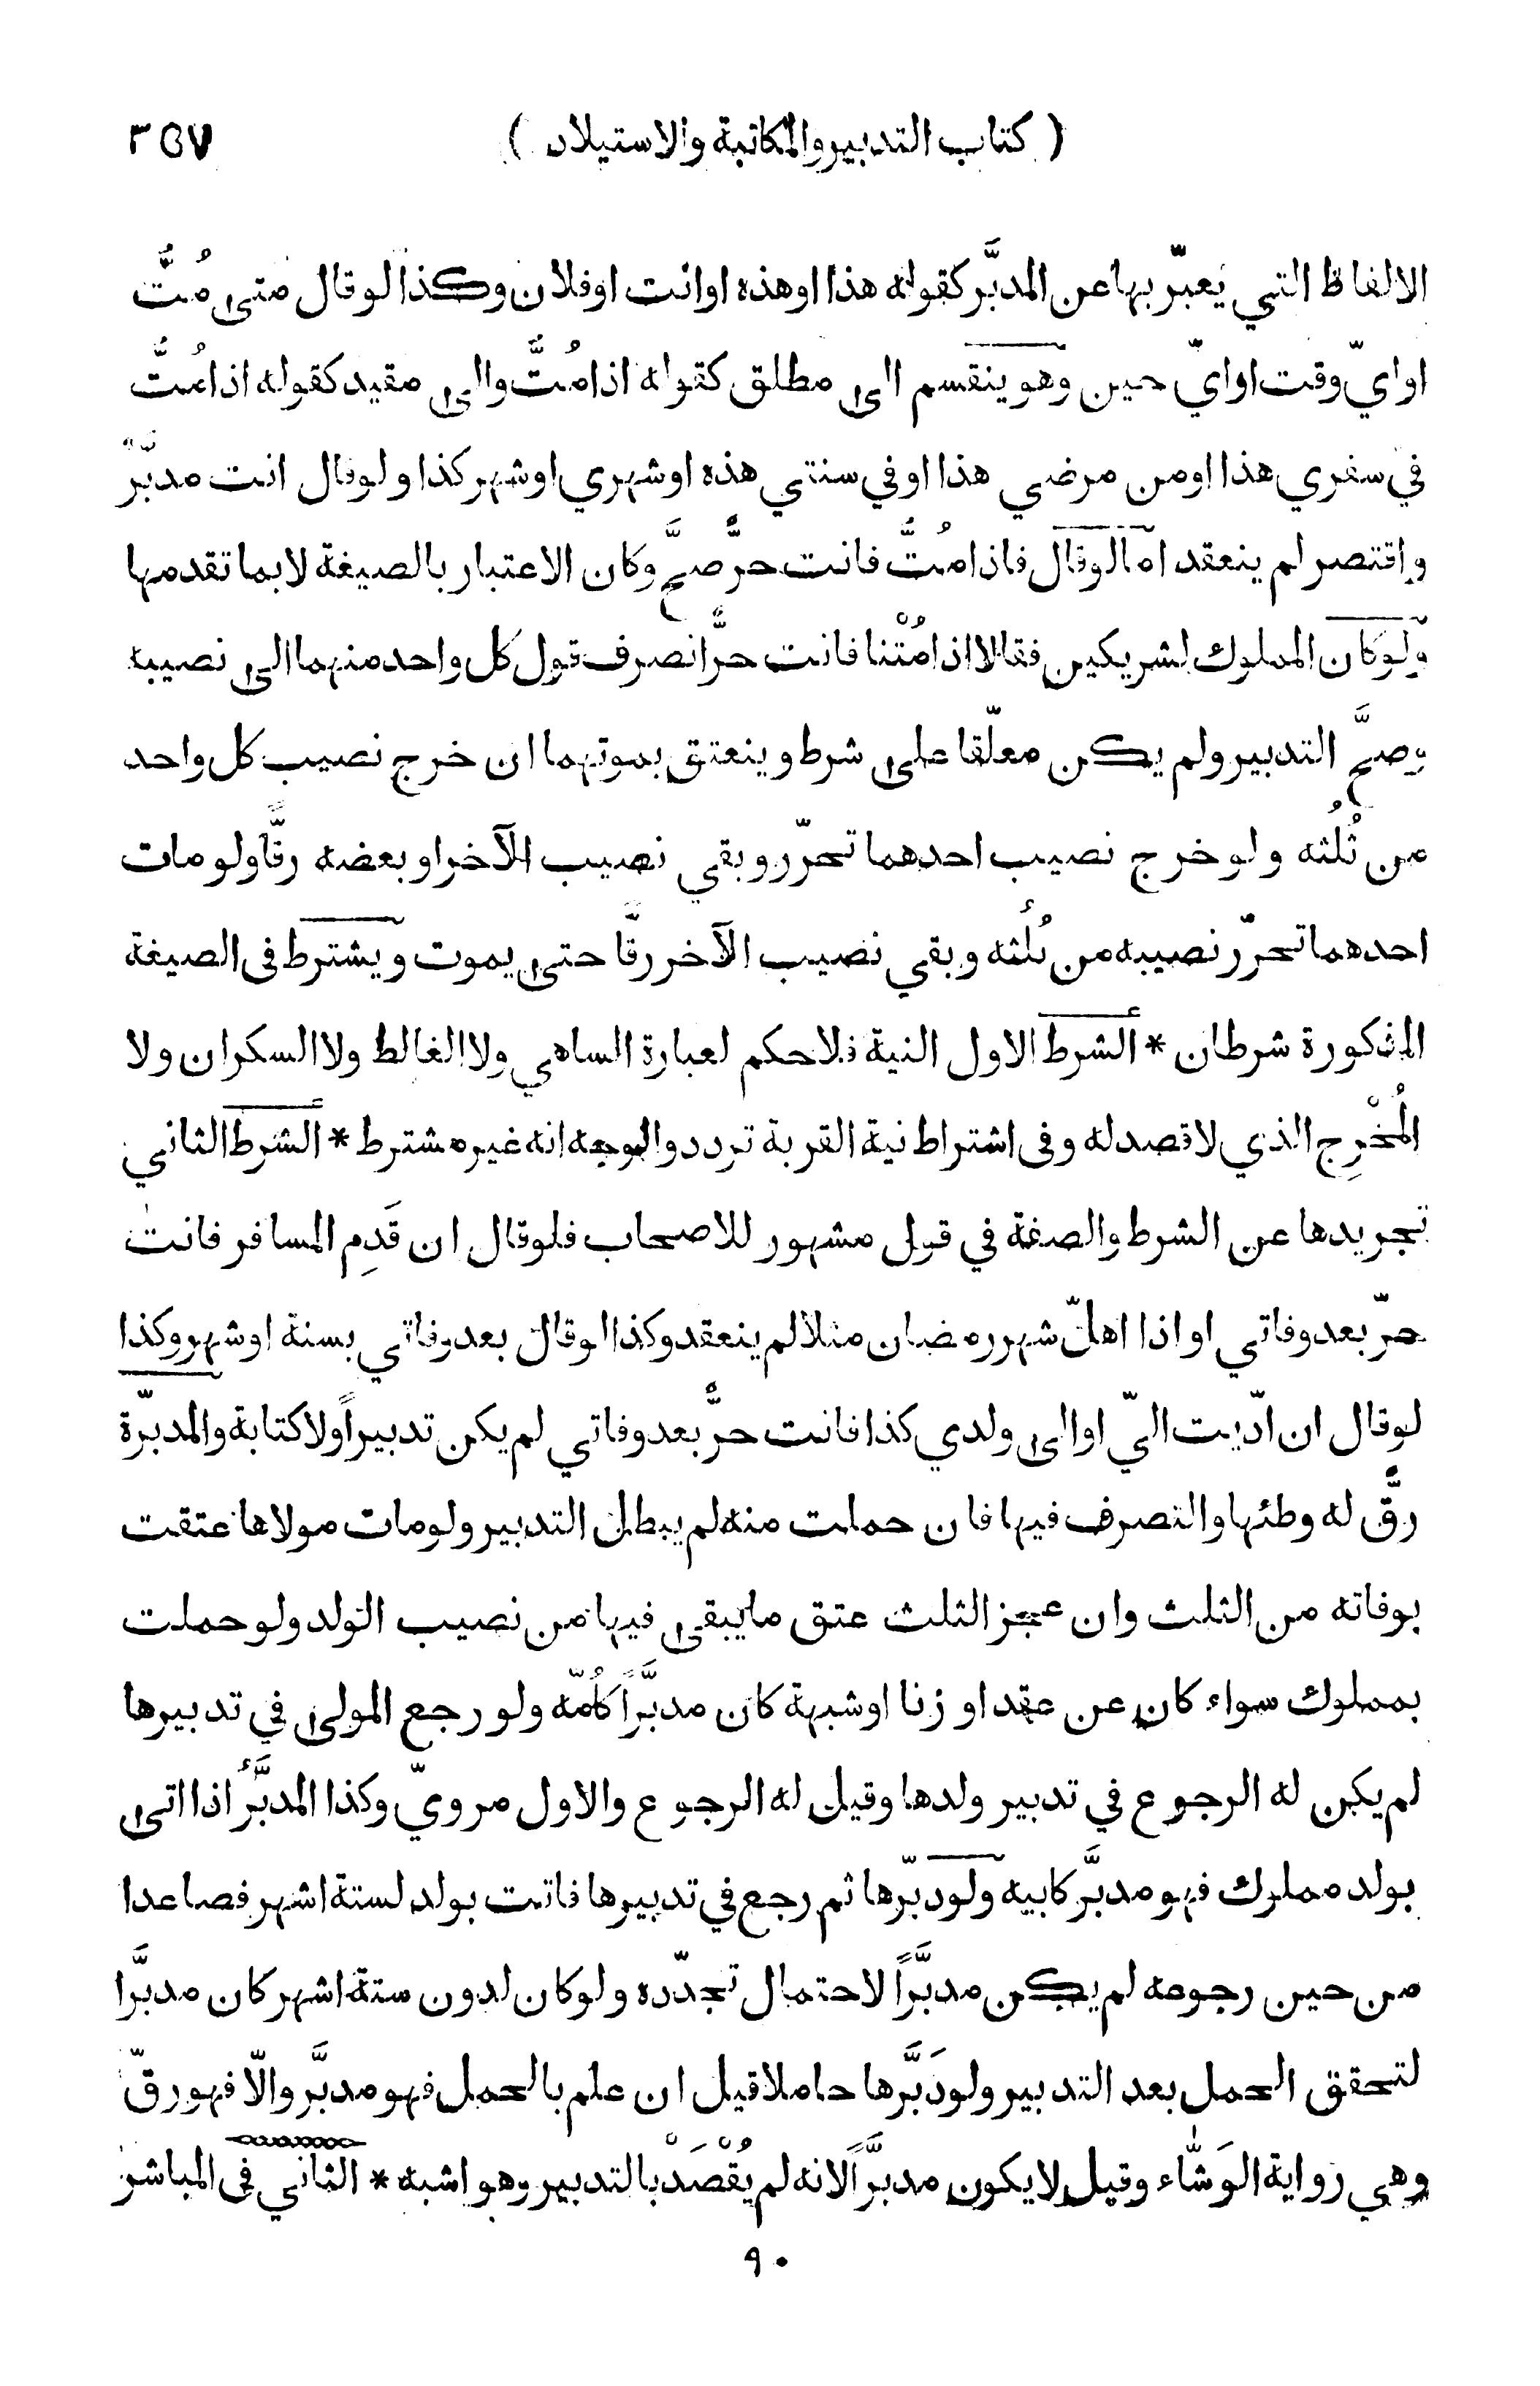 ( كتاب التدبير والمكاتبة والاستيلاد ) ٣٥٧
الالفاظ التي يَعبّر بها عن المدبَّر كقوله هذا او هذه او انت او فلان وكذا لو قال متى مُتُّ
او ايّ وقت او ايّ حين وهو ينقسم الى مطلق كقوله اذا مُتُّ والى مقيد كقوله اذا مُتُّ
في سفري هذا او من مرضي هذا او في سنتي هذه او شهري او شهر كذا ولو قال انت مدبّر
واقتصر لم ينعقد اما لو قال فاذا مُتُّ فانت حرٌّ صحَّ وكان الاعتبار بالصيغة لا بما تقدمها
ولو كان المملوك لشريكين فقالا اذا مُتْنا فانت حرٌّ انصرف قول كل واحد منهما الى نصيبه
وصحَّ التدبير ولم يكن معلّقا على شرط وينعتق بموتهما ان خرج نصيب كل واحد
من ثُلُثه ولو خرج نصيب احدهما تحرّر وبقي نصيب الآخر او بعضه رقًّا ولو مات
احدهما تحرّر نصيبه من ثُلُثه وبقي نصيب الآخر رقًّا حتى يموت ويشترط فى الصيغة
المذكورة شرطان * الشرط الاول النية فلا حكم لعبارة الساهي ولا الغالط ولا السكران ولا
المُحْرِج الذي لا قصد له وفى اشتراط نية القربة تردد والوجه انه غير مشترط * الشرط الثاني
تجريدها عن الشرط والصفة في قول مشهور للاصحاب فلو قال ان قَدِم المسافر فانت
حرّ بعد وفاتي او اذا اهلّ شهر رمضان مثلا لم ينعقد وكذا لو قال بعد وفاتي بسنة او شهر وكذا
لو قال ان ادّيت اليّ او الى ولدي كذا فانت حرٌّ بعد وفاتي لم يكن تدبيراً ولا كتابة والمدبّرة
رقٌّ له وطئها والتصرف فيها فان حملت منه لم يبطل التدبير ولو مات مولاها عتقت
بوفاته من الثلث وان عجز الثلث عتق ما يبقى فيها من نصيب الولد ولو حملت
بمملوك سواء كان عن عقد او زنا او شبهة كان مدبَّراً كاُمّه ولو رجع المولى في تدبيرها
لم يكن له الرجوع في تدبير ولدها وقيل له الرجوع والاول مرويّ وكذا المدبَّر اذا اتى
بولد مملوك فهو مدبَّر كابيه ولو دبّرها ثم رجع في تدبيرها فاتت بولد لستة اشهر فصاعدا
من حين رجوعه لم يكن مدبَّراً لاحتمال تجدّده ولو كان لدون ستة اشهر كان مدبَّرا
لتحقق الحمل بعد التدبير ولو دَبَّرها حاملا قيل ان علم بالحمل فهو مدبَّر والّا فهو رقّ
وهي رواية الوَشّاء وقيل لا يكون مدبَّراً لانه لم يُقْصَدْ بالتدبير وهو اشبه * الثاني فى المباشر
٩٠